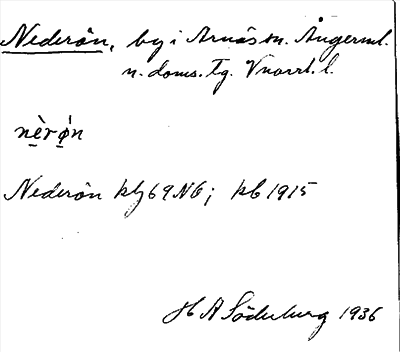 Nederån, by i Arnäs sn. Ångerml.
n. doms. tg. Vnorrl. l.
nèrǫ́n
Nederån kbj 69 NG; kb 1915
H A Söderburg 1936